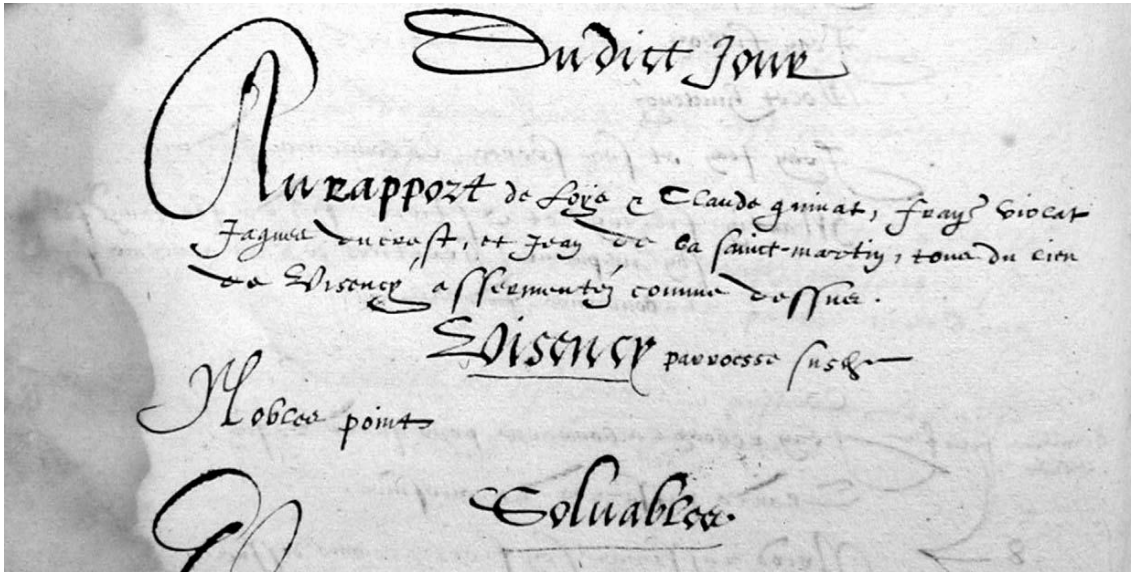 Dudict Jour
Au rapport de Loys & Claude guinat, frãçs violat
Jaques ducrest, et Jean de la sainct-martin, tous du lieu
de Visency, assermentéz comme dessus.
Visency parrocsse susdte
Nobles point
Solvables